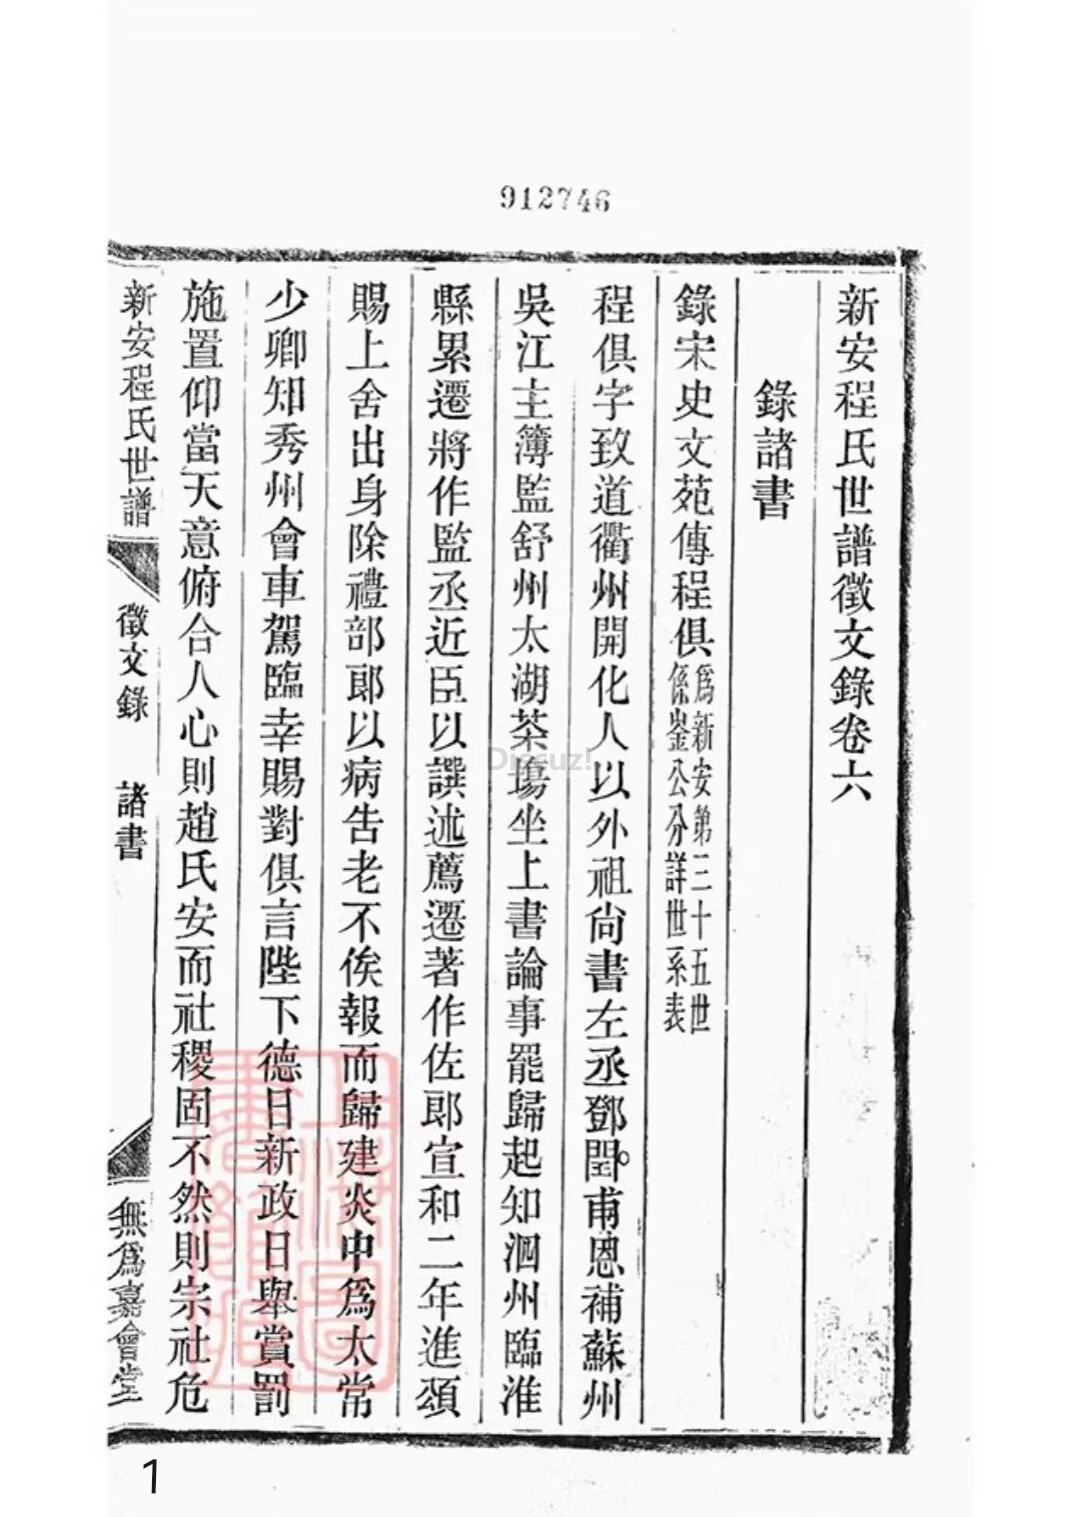 912746
新安程氏世譜徵文錄卷六
錄諸書
錄宋史文苑傳程俱爲新安第三十五世係崟公分詳世系表
程俱字致道衢州開化人以外祖尚書左丞鄧閏甫恩補蘇州
吳江主簿監舒州太湖茶塲坐上書論事罷歸起知泗州臨淮
縣累遷將作監丞近臣以譔述薦遷著作佐郎宣和二年進頌
賜上舍出身除禮部郎以病告老不俟報而歸建炎中爲太常
少卿知秀州會車駕臨幸賜對俱言陛下德日新政日舉賞罰
施置仰當天意俯合人心則趙氏安而社稷固不然則宗社危
新安程氏世譜
徵文錄
諸書
無爲嘉會堂
上海圖書館藏
Discuz!
1